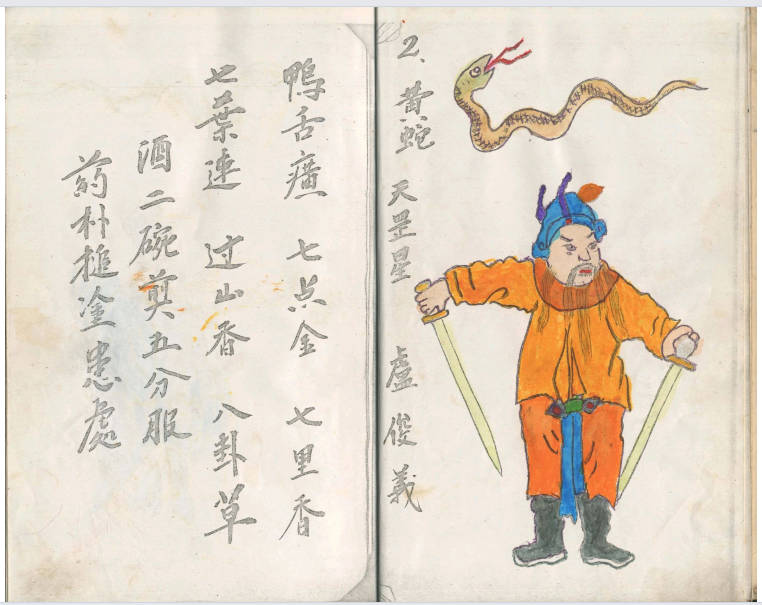 2、黄蛇 天罡星 盧俊義
鴨舌癀 七点金 七里香
七葉連 过山香 八卦草
酒二碗煎五分服
葯朴搥塗患處